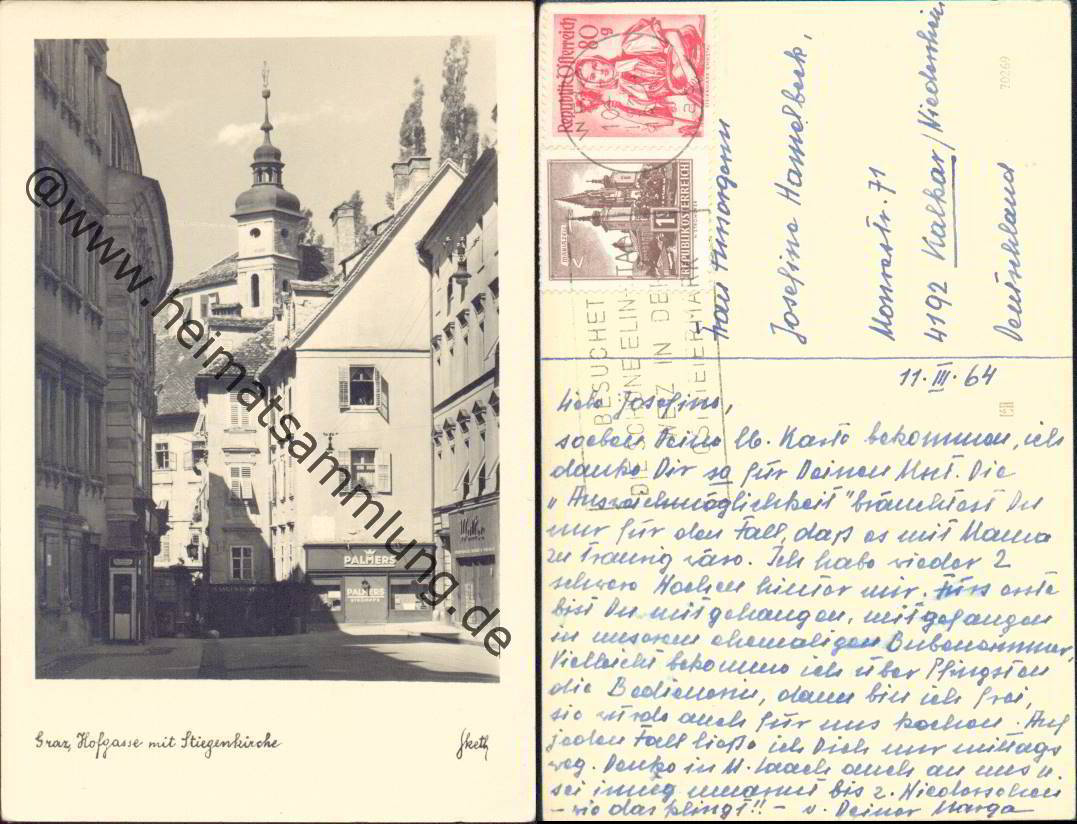 PALMERS
PALMERS
Graz, Hofgasse mit Stiegenkirche
@www.heimatsammlung.de
Republik Österreich
80 g
1 S
REPUBLIK ÖSTERREICH
MARIAZELL
BESUCHET
DIE SCHÖNE
GRAZ IN DER
STEIERMARK
Frau Amorgenn
Josefine Hamelbeck,
Monrestr. 71
4192 Kalkar/Niederrhein
Deutschland
70269
11. III. 64
Liebe Josefine,
soeben Deine lb. Karte bekommen, ich
danke Dir so für Deinen Mut. Die
"Ausweichmöglichkeit" bräuchtest Du
nur für den Fall, daß es mit Mama
zu traurig wäre. Ich habe wieder 2
schwere Wochen hinter mir. Fürs erste
bist Du mitgehangen, mitgefangen
in unserem ehemaligen Bubenzimmer,
Vielleicht bekomme ich über Pfingsten
die Bedienerin, dann bin ich frei,
sie würde auch für uns kochen. Auf
jeden Fall ließe ich Dich nur mittags
weg. Denke in M. Laach auch an uns u.
sei innig umarmt bis z. Wiedersehen
- wie das klingt!! - v. Deiner Marga